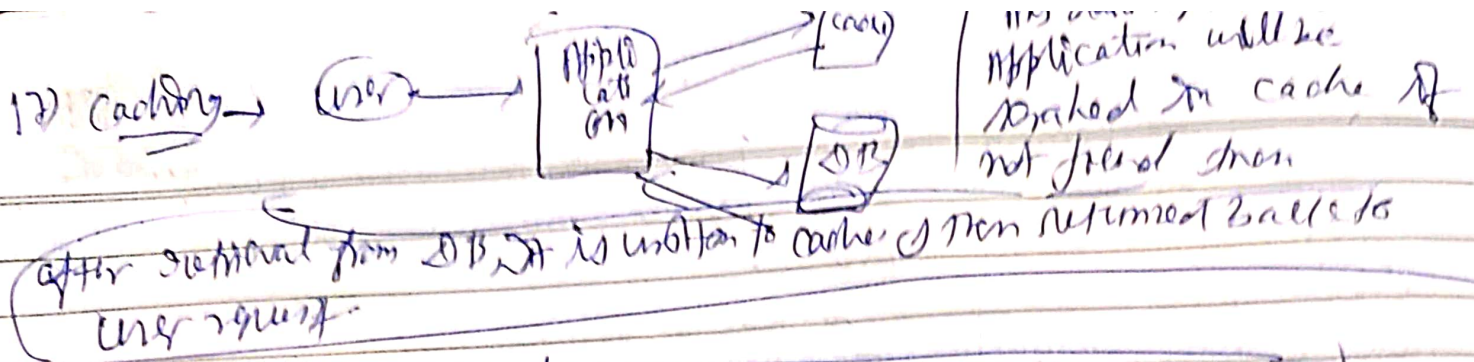 17) Caching → user
Appli
cati
on
cache
DB
application will be
in cache if
not found then
after retrieval from DB, it is written to cache & then returned back to
user request.